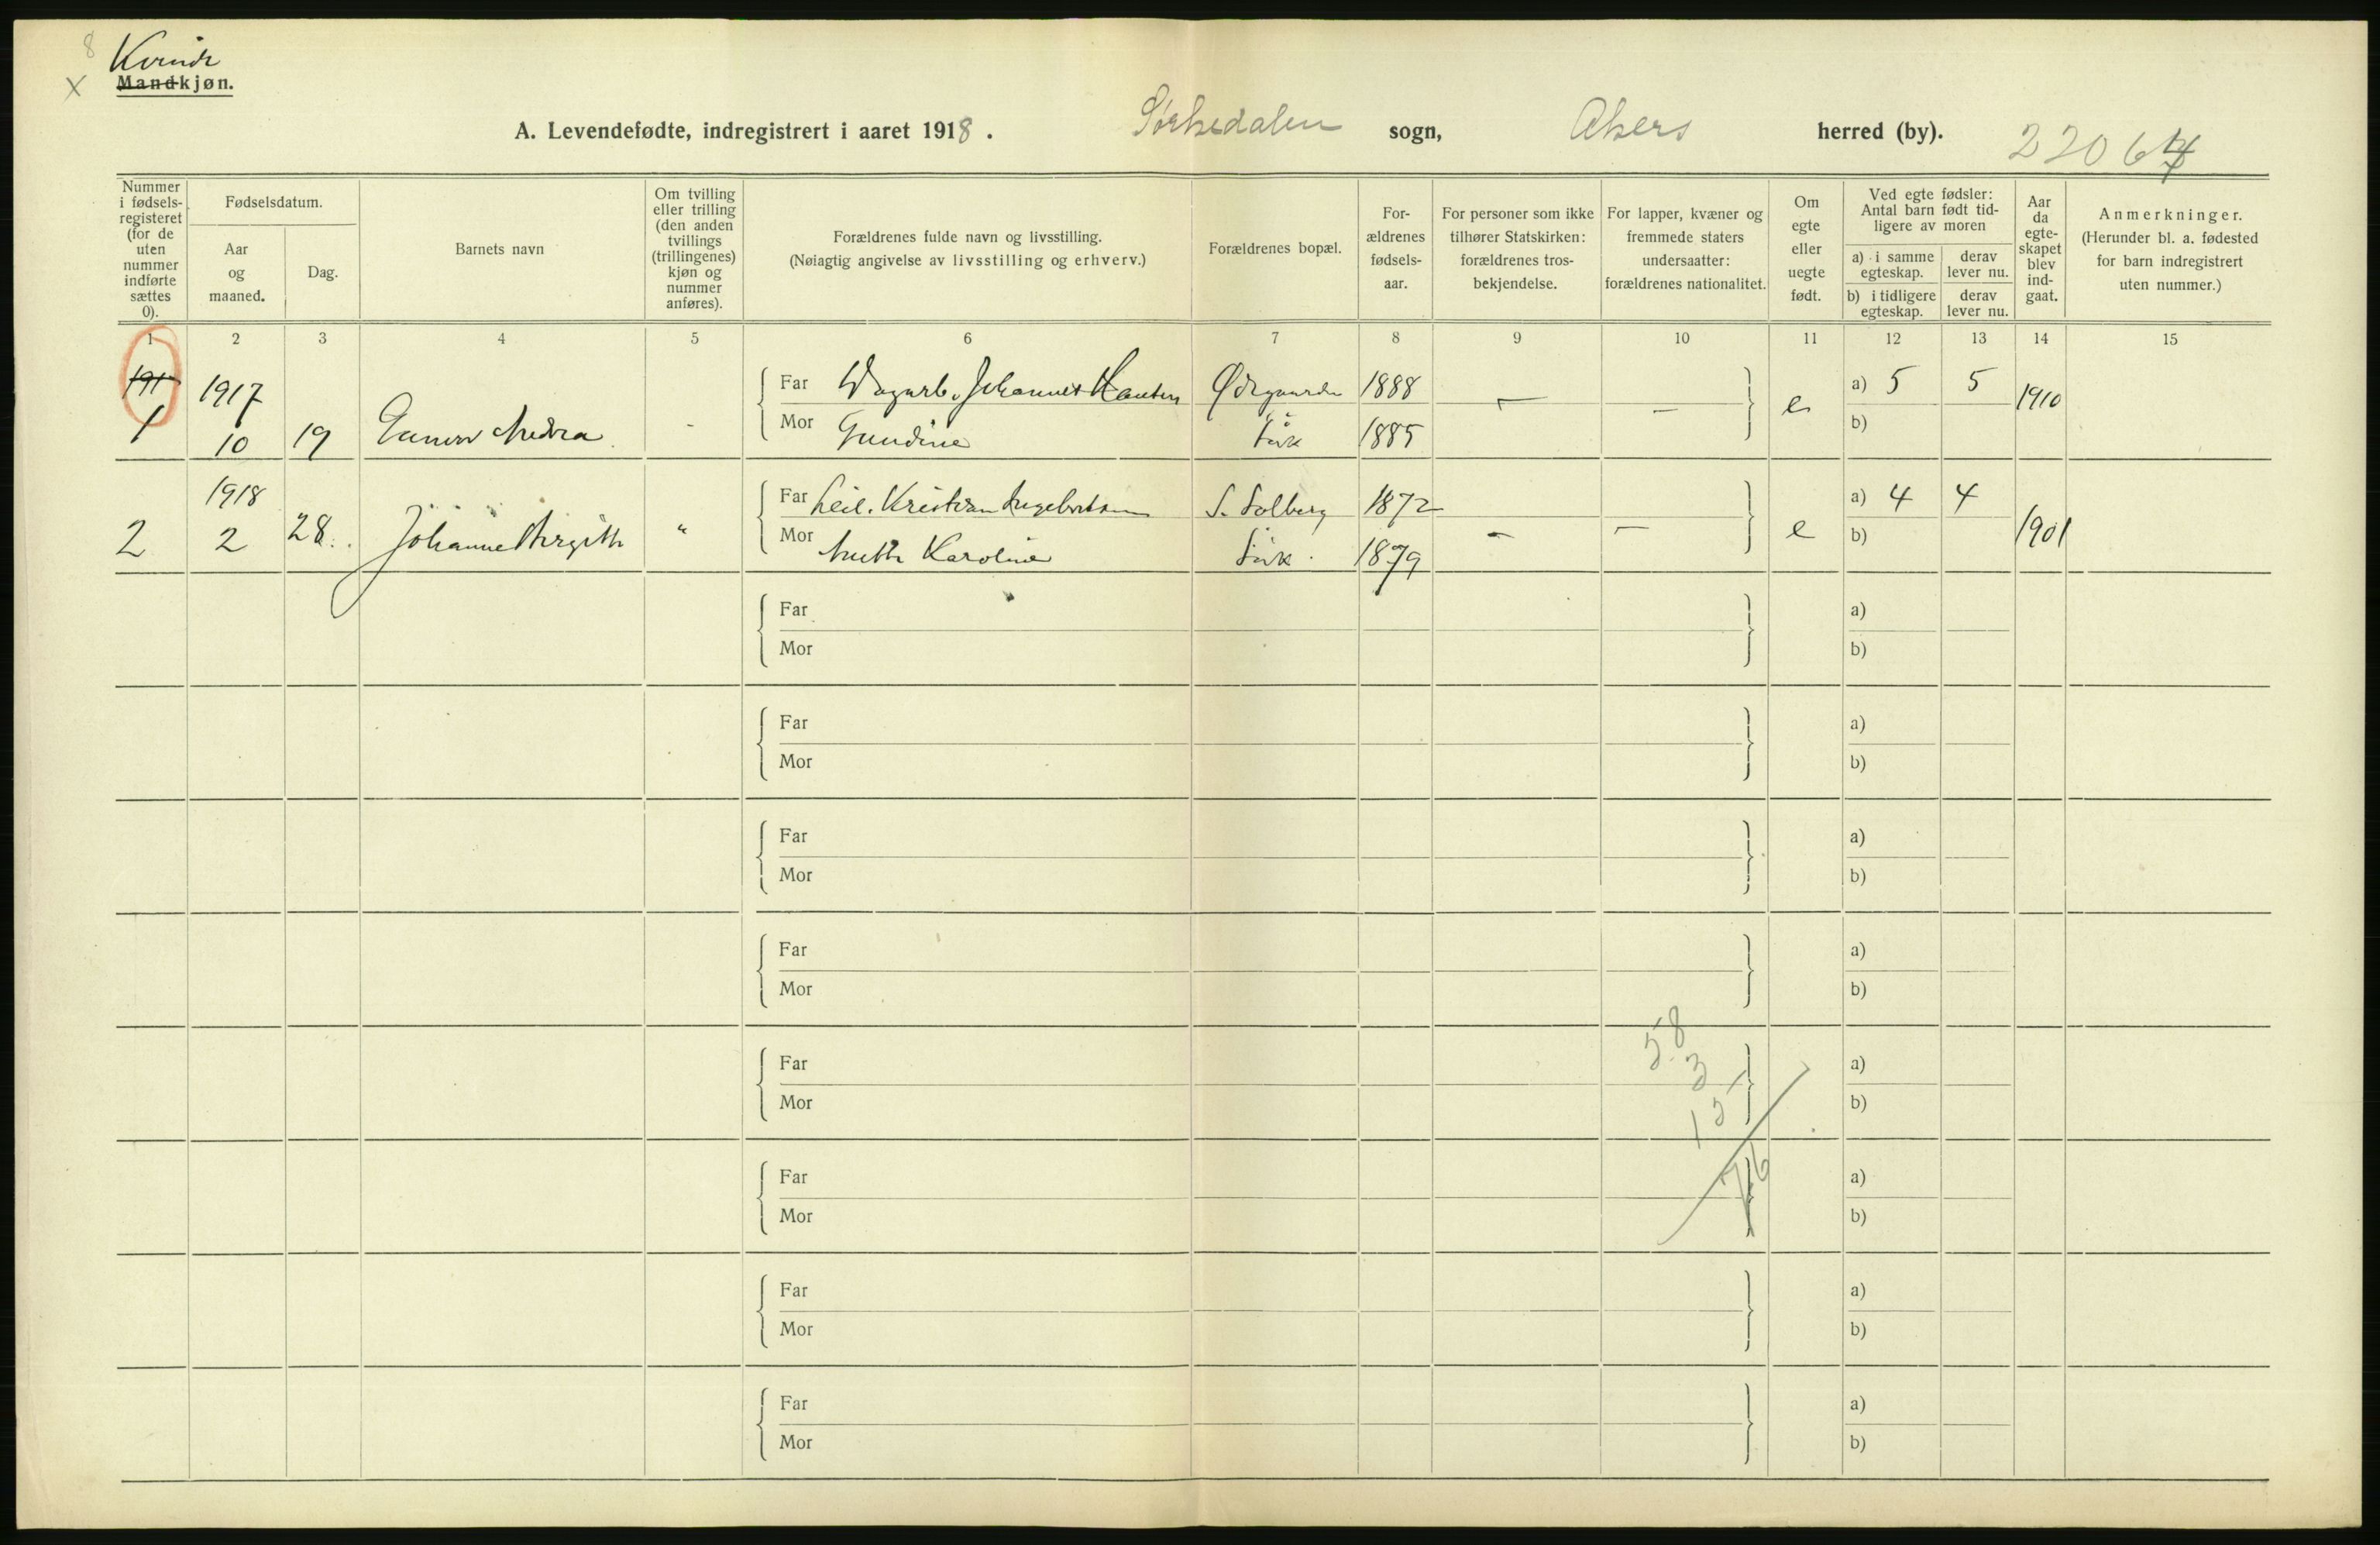 8 Kvinde
x Mandkjøn.
A. Levendefødte, indregistrert i aaret 1918. Sørkedalen sogn, Akers herred (by). 2206
Nummer i fødselsregisteret (for de uten nummer indførte sættes 0).
Fødselsdatum.
Aar og maaned.
Dag.
Barnets navn
Om tvilling eller trilling (den anden tvillings (trillingenes) kjøn og nummer anføres).
Forældrenes fulde navn og livsstilling.
(Nøiagtig angivelse av livsstilling og erhverv.)
Forældrenes bopæl.
For-ældrenes fødsels-aar.
For personer som ikke tilhører Statskirken: forældrenes tros-bekjendelse.
For lapper, kvæner og fremmede staters undersaatter: forældrenes nationalitet.
Om egte eller uegte født.
Ved egte fødsler: Antal barn født tid-ligere av moren
a) i samme egteskap. derav lever nu.
b) i tidligere egteskap. derav lever nu.
Aar da egte-skapet blev ind-gaat.
Anmerkninger.
(Herunder bl. a. fødested for barn indregistrert uten nummer.)
1 2 3 4 5 6 7 8 9 10 11 12 13 14 15
191 1917 Far Johannes Hansen 1888 — — e a) 5 5 1910
1 10 19 Gunvor - Mor Gundine 1885 b)
1918 Far Leil. Kristian Ingebretsen S. Solberg 1872 - — e a) 4 4 1901
2 2 28. Johanne Birgith " Mor Karoline 1879 b)
Far a)
Mor b)
Far a)
Mor b)
Far a)
Mor b)
Far a)
Mor b)
58
Far 3 a)
Mor 15 b)
Far 76 a)
Mor b)
Far a)
Mor b)
Far a)
Mor b)